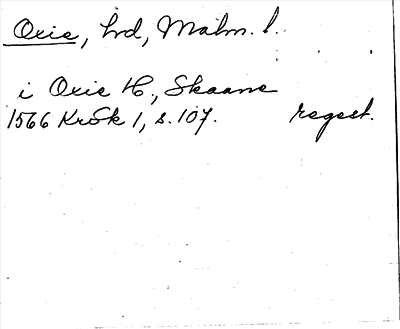 Oxie, hrd, Malm. l.
i Oxie H., Skaane
1566 KrSk 1, s. 107. regest.